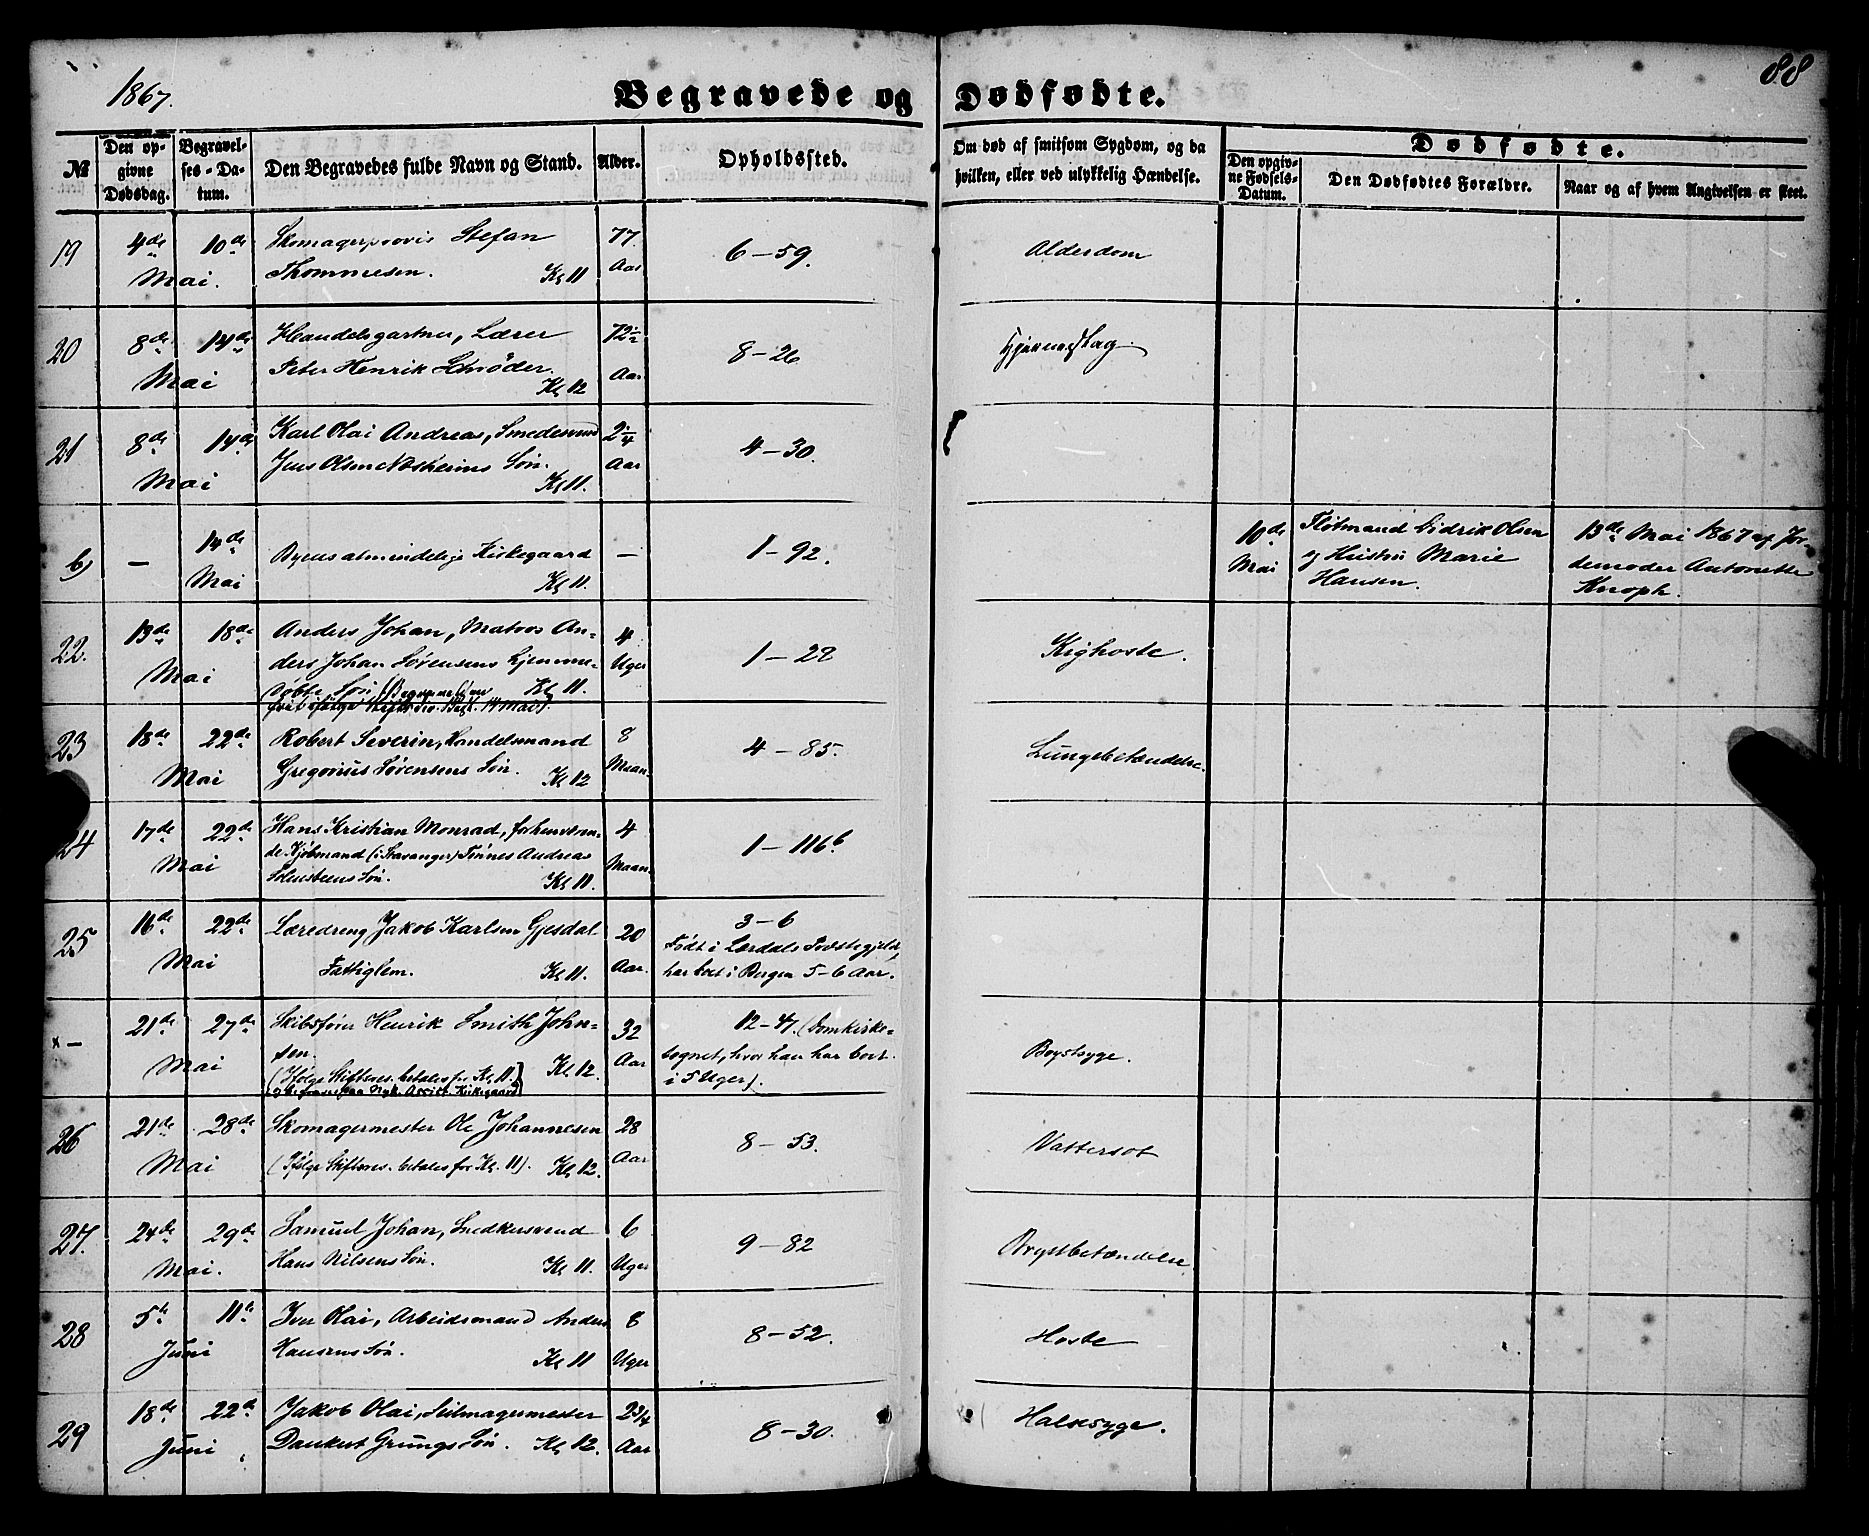 1867.
Begravede og Dødfødte.
88
№
Den opgivne Dødsdag.
Begravelses-Datum.
Den Begravedes fulde Navn og Stand.
Alder.
Opholdssted.
Om død af smitsom Sygdom, og da hvilken, eller ved ulykkelig Hændelse.
Dødfødte.
Den opgivne Fødsels-Datum.
Den Dødfødtes Forældre.
Naar og af hvem Angivelsen er skeet.
19 4de 10de Skomagerprovis Stefan 77 6-59. Alderdom
Mai. Thommesen. Kl 11 Aar
20 8de 14de Handelsgartner, Lærer 72½ 8-26 Hjerneslag.
Mai Peter Henrik Schrøder. Kl 12 Aar
21 8de 14de Karl Olai Andreas, Smedesvend 2¼ 4-30.
Mai Jens Olsen Søn. Kl 11. Aar
b) — 14de Byens almindelige Kirkegaard — 1-92. 10de Flotmand Didrik Olsen 13de Mai 1867 af Jor-
Mai Kl 11. Mai og Hustru Marie demoder Antonette
Hansen. Knoph.
22. 13de 18de Anders Johan, Matros An- 4 1-22 Kighoste.
Mai ders Johan Sørensens hjemme- Uger
døbte Søn Kl 11.
23 18de 22de Robert Severin, Handelsmand 8 4-85. Lungebetændelse.
Mai Gregorius Sørensens Søn. Kl 12 Maan.
24 17de 22de Hans Kristian Monrad, forhenværen- 4 1-116b
Mai de Kjøbmand (i Stavanger) Tønnes Andreas Maan.
Søn. Kl 11.
25 16de 22de Læredreng Jakob Karlsen Gjesdal 20 3-6
Mai Fattiglem. Kl 11. Aar. Født i Lærdals Præstegjeld,
har boet i Bergen 5-6 Aar.
x— 21de 27de Skibsfører Henrik Smith John- 32 12-47. (Domkirke- Brystsyge.
Mai sen. Kl 12. Aar sognet, hvor han har boet
(Ifølge Stiftsres. betales for Kl. 11. i 5 Uger).
Assist. Kirkegaard)
26 21de 28de Skomagermester Ole Johannesen 28 8-53. Vattersot
Mai (Ifølge Stiftsres. betales for Kl. 11). Kl 12. Aar
27. 24de 29de Samuel Johan, Snedkersvend 6 9-82 Brystbetændelse.
Mai. Hans Nilsens Søn. Kl 11. Uger
28 5te 11te Iver Olai, Arbeidsmand Anders 8 8-52. Hoste
Juni Hansens Søn. Kl 11 Uger
29 18de 22de Jakob Olai, Seilmagermester 2¾ 8-30. Halssyge.
Juni Dankert Grungs Søn. Kl 12. Aar